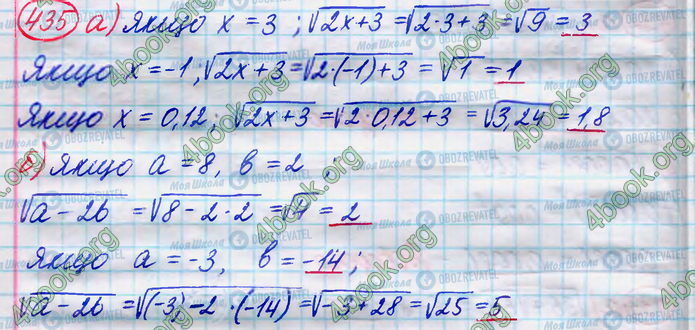 435 а) Якщо x = 3 ; √2x+3 = √2·3+3 = √9 = 3
Якщо x = -1, √2x+3 = √2·(-1)+3 = √1 = 1
Якщо x = 0,12; √2x+3 = √2·0,12+3 = √3,24 = 1,8
б) Якщо a = 8, b = 2 ;
√a - 2b = √8 - 2·2 = √4 = 2
Якщо a = -3, b = -14;
√a - 2b = √(-3) - 2·(-14) = √-3 + 28 = √25 = 5
4book.org
Моя Школа
OBOZREVATEL